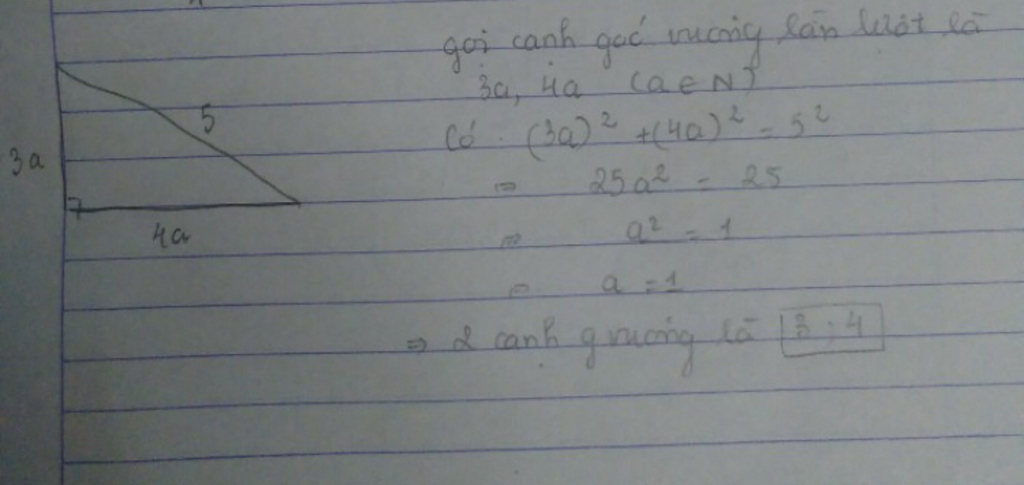 gọi cạnh góc vuông lần lượt là
3a, 4a (a ∈ N)
5
Có : (3a)² + (4a)² = 5²
3a
⇒ 25a² = 25
4a
⇒ a² = 1
⇒ a = 1
⇒ 2 cạnh g vuông là 3 ; 4